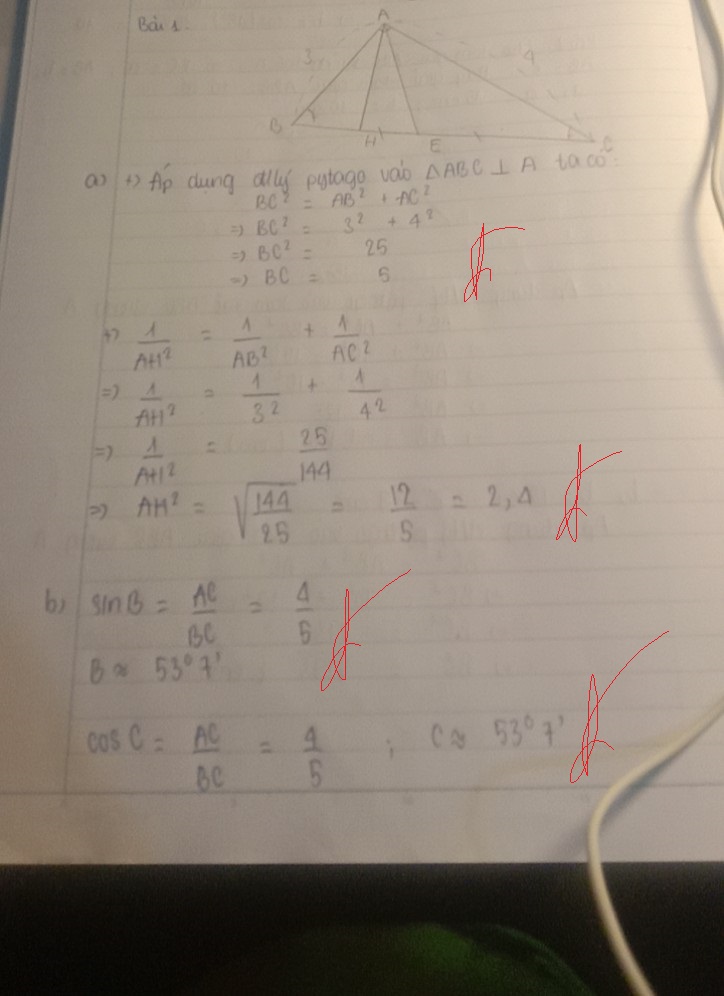 Bài 1.
A
3
4
B
H
E
C
a) +) Áp dụng đlý pytago vào ΔABC ⊥ A ta có:
BC² = AB² + AC²
=> BC² = 3² + 4²
=> BC² = 25
=> BC = 5
+) 1/AH² = 1/AB² + 1/AC²
=> 1/AH² = 1/3² + 1/4²
=> 1/AH² = 25/144
=> AH² = √(144/25) = 12/5 = 2,4
b) sinB = AC/BC = 4/5
B ≈ 53°7'
cos C = AC/BC = 4/5 ; C ≈ 53°7'